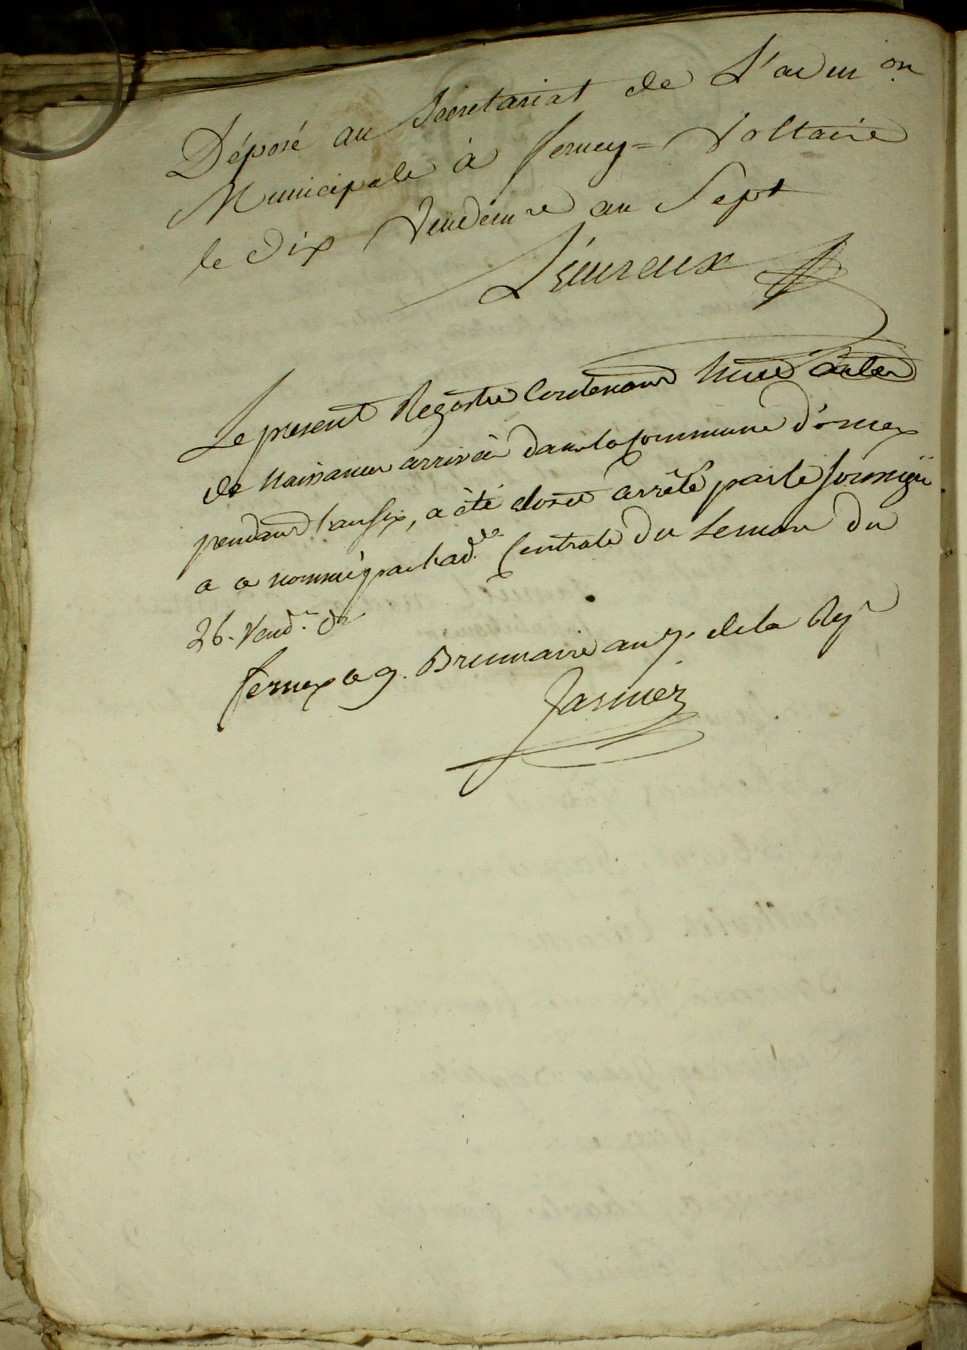 Déposé au Secretariat de L'adm.on
Municipale à ferney=Voltaire
le dix Vendém.re an Sept
Léureux
Le present Registre Contenant actes
de Naissances arrivées dans la Commune d'ornex
pendant l'an six, a été clos et arrêté par le soussigné
a ce nommé par l'ad.on Centrale du Leman du
26. Vend.re dr
fernex ce 9. Brumaire an 7. de la Rep.